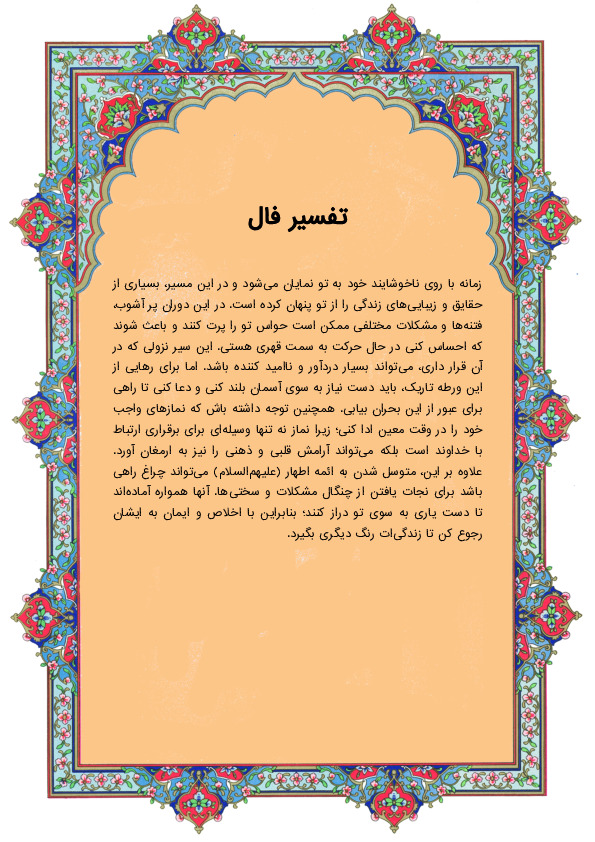 تفسیر فال
زمانه با روی ناخوشایند خود به تو نمایان می‌شود و در این مسیر، بسیاری از
حقایق و زیبایی‌های زندگی را از تو پنهان کرده است. در این دوران پر آشوب،
فتنه‌ها و مشکلات مختلفی ممکن است حواس تو را پرت کنند و باعث شوند
که احساس کنی در حال حرکت به سمت قهری هستی. این سیر نزولی که در
آن قرار داری، می‌تواند بسیار دردآور و ناامید کننده باشد. اما برای رهایی از
این ورطه تاریک، باید دست نیاز به سوی آسمان بلند کنی و دعا کنی تا راهی
برای عبور از این بحران بیابی. همچنین توجه داشته باش که نمازهای واجب
خود را در وقت معین ادا کنی؛ زیرا نماز نه تنها وسیله‌ای برای برقراری ارتباط
با خداوند است بلکه می‌تواند آرامش قلبی و ذهنی را نیز به ارمغان آورد.
علاوه بر این، متوسل شدن به ائمه اطهار (علیهم‌السلام) می‌تواند چراغ راهی
باشد برای نجات یافتن از چنگال مشکلات و سختی‌ها. آنها همواره آماده‌اند
تا دست یاری به سوی تو دراز کنند؛ بنابراین با اخلاص و ایمان به ایشان
رجوع کن تا زندگی‌ات رنگ دیگری بگیرد.